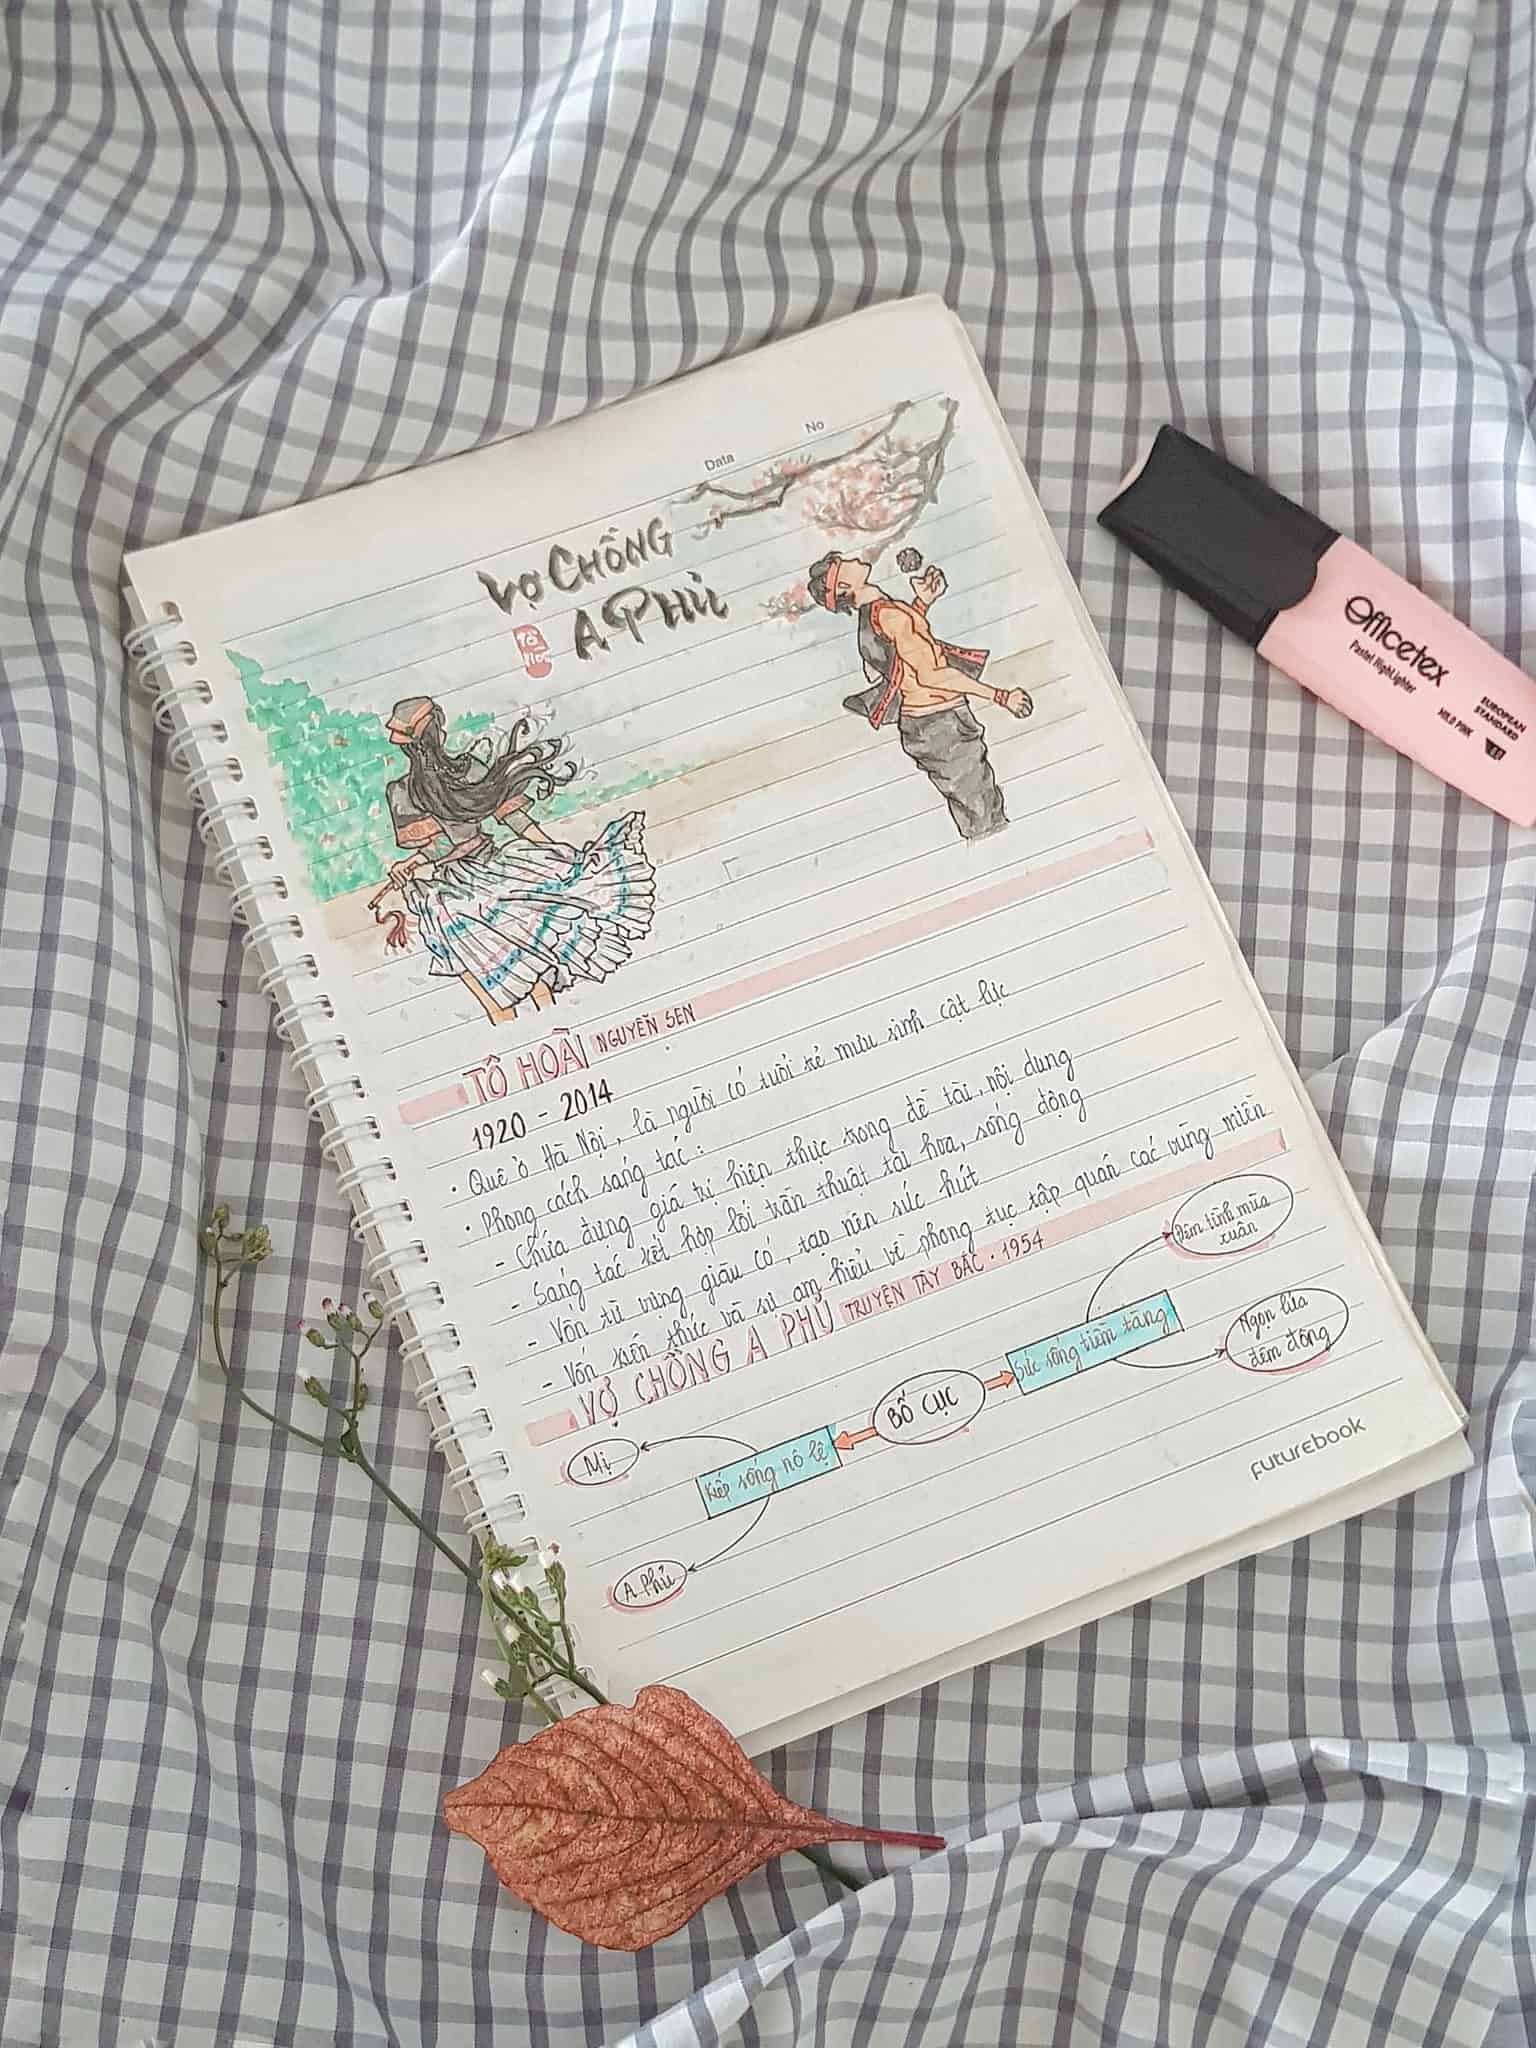 Data
No
VỢ CHỒNG
A PHỦ
TÔ HOÀI NGUYỄN SEN
1920 - 2014
• Quê ở Hà Nội, là người có tuổi trẻ mưu sinh cật lực
• Phong cách sáng tác:
- Chứa đựng giá trị hiện thực trong đề tài, nội dung
- Sáng tác kết hợp lối trần thuật tài hoa, sống động
- Vốn từ vựng giàu có, tạo nên sức hút
- Vốn kiến thức và sự am hiểu về phong tục tập quán các vùng miền
VỢ CHỒNG A PHỦ TRUYỆN TÂY BẮC • 1954
Đêm tình mùa
xuân
Sức sống tiềm tàng
Ngọn lửa
đêm đông
BỐ CỤC
Kiếp sống nô lệ
Mị
A Phủ
futurebook
Officetex
Pastel HighLighter
MILD PINK
EUROPEAN
STANDARD